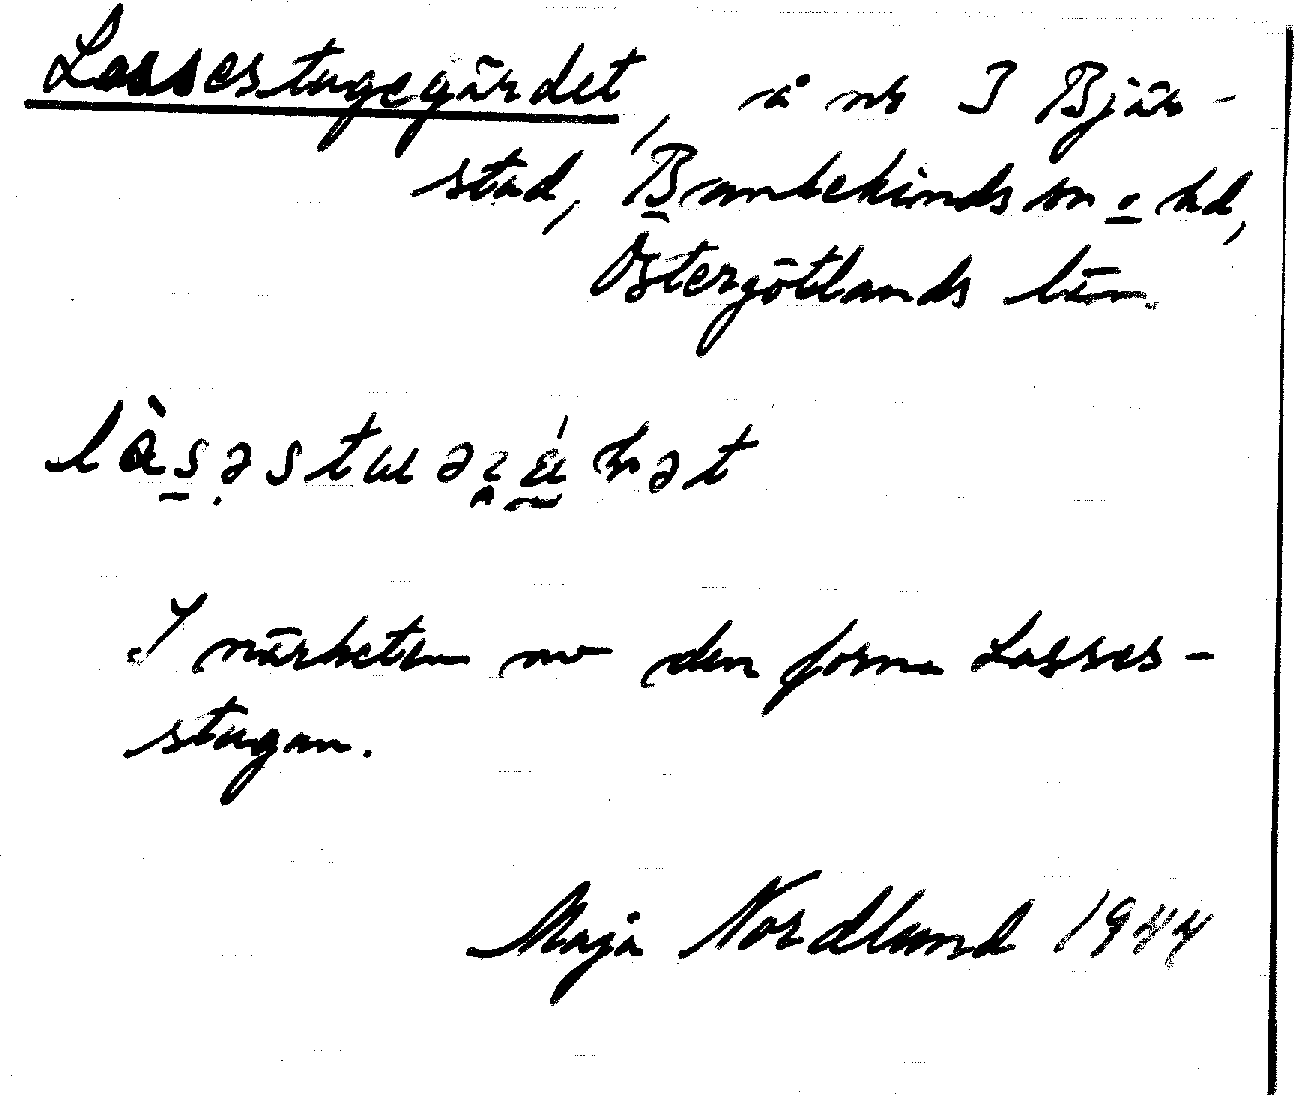 Lassestugegärdet, å nr 3 Bjär-
stad, Bankekinds sn o. hd,
Östergötlands län.
I närheten av den forna Lasses-
stugan.
Maja Nordlund 1944